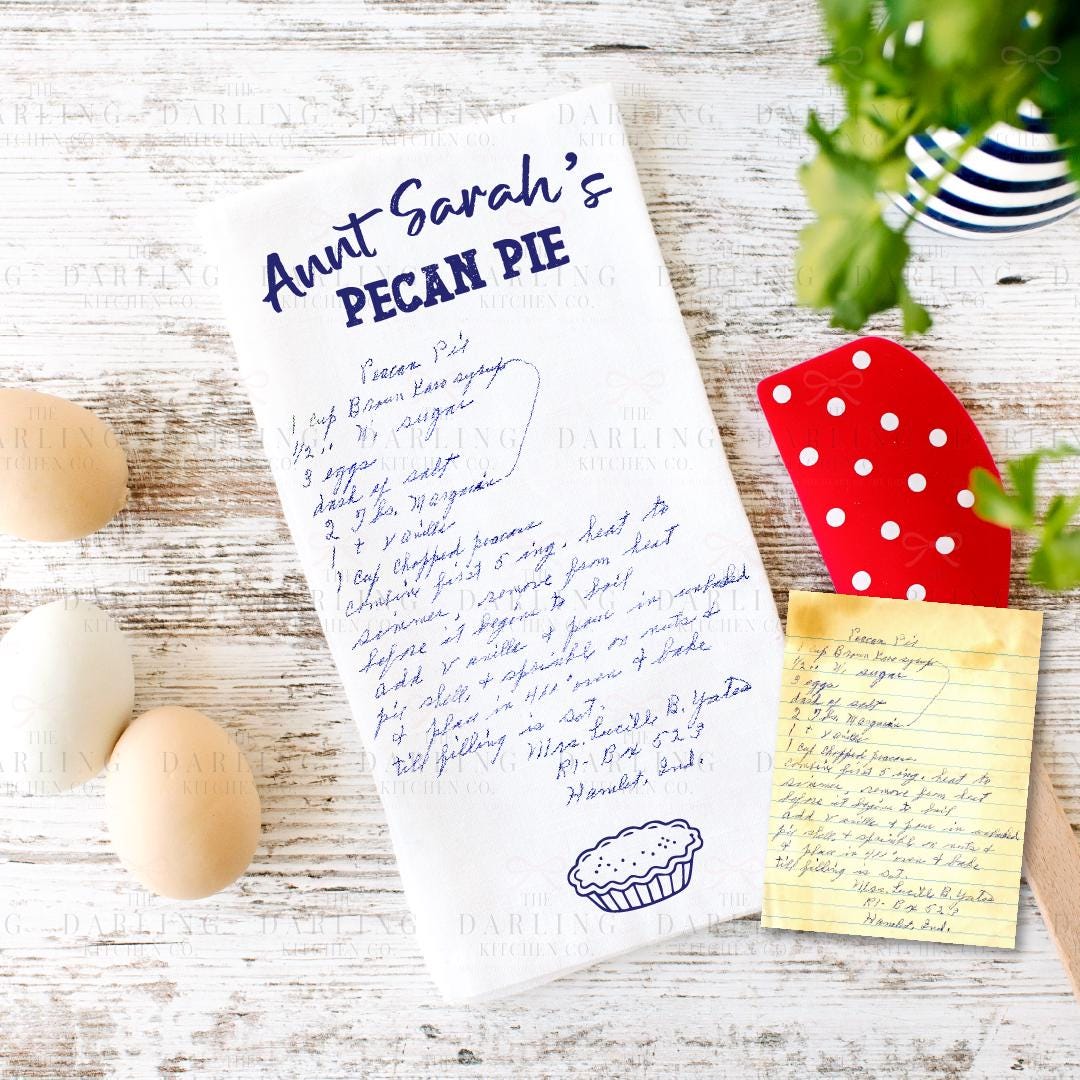 Aunt Sarah's
PECAN PIE
Peacan Pie
1 cup Brown Karo syrup
1/2 " W, sugar
3 eggs
dash of salt
2 Tbs. Margarine
1 t vanilla
1 cup chopped peacans
combine first 5 ing. heat to
simmer, remove from heat
before it begins to boil
add vanilla & pour in unbaked
pie shell, & sprinkle on nuts &
& place in oven & bake
till filling is set.
Mrs. Lucille B. Yates
R1- Box 523
Hamlet, Ind.
Peacan Pie
1 cup Brown Karo syrup
1/2 " W, sugar
3 eggs
dash of salt
2 Tbs. Margarine
1 t vanilla
1 cup chopped peacans
combine first 5 ing. heat to
simmer, remove from heat
before it begins to boil
add vanilla & pour in unbaked
pie shell, & sprinkle on nuts &
& place in oven & bake
till filling is set.
Mrs. Lucille B. Yates
R1- Box 523
Hamlet, Ind.
THE
DARLING
KITCHEN CO.